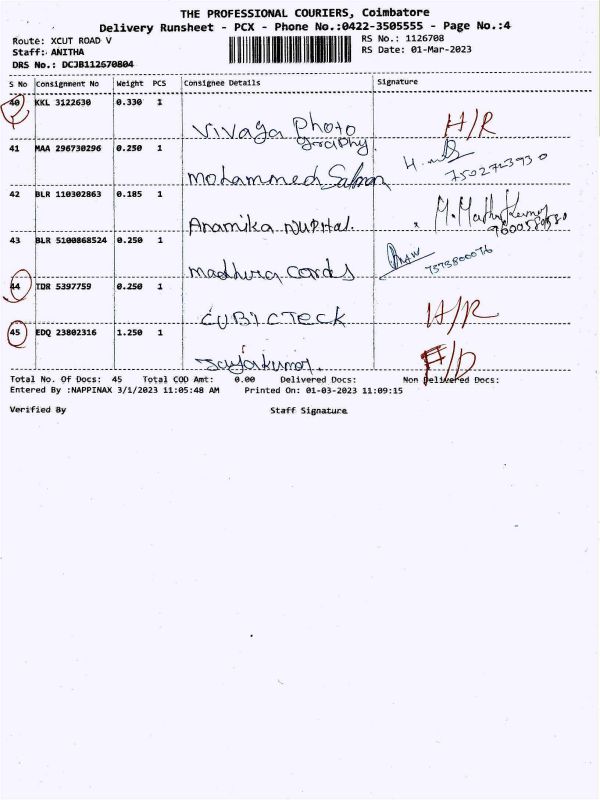 THE PROFESSIONAL COURIERS, Coimbatore
Delivery Runsheet - PCX - Phone No.:0422-3505555 - Page No.:4
Route: XCUT ROAD V RS No.: 1126708
Staff: ANITHA RS Date: 01-Mar-2023
DRS No.: DCJB112670804
S No Consignment No Weight PCS Consignee Details Signature
40 KKL 3122630 0.330 1
Vivaga Photo graphy. H/R
41 MAA 296730296 0.250 1
Mohammed Salman 7502723930
42 BLR 110302863 0.185 1
Anamika
43 BLR 5100868524 0.250 1
Madhura Cards 7373800076
44 TDR 5397759 0.250 1
CUBIC TECK H/R
45 EDQ 23802316 1.250 1
Jayakumar. F/D
Total No. Of Docs: 45 Total COD Amt: 0.00 Delivered Docs: Non Delivered Docs:
Entered By :NAPPINAX 3/1/2023 11:05:48 AM Printed On: 01-03-2023 11:09:15
Verified By Staff Signature